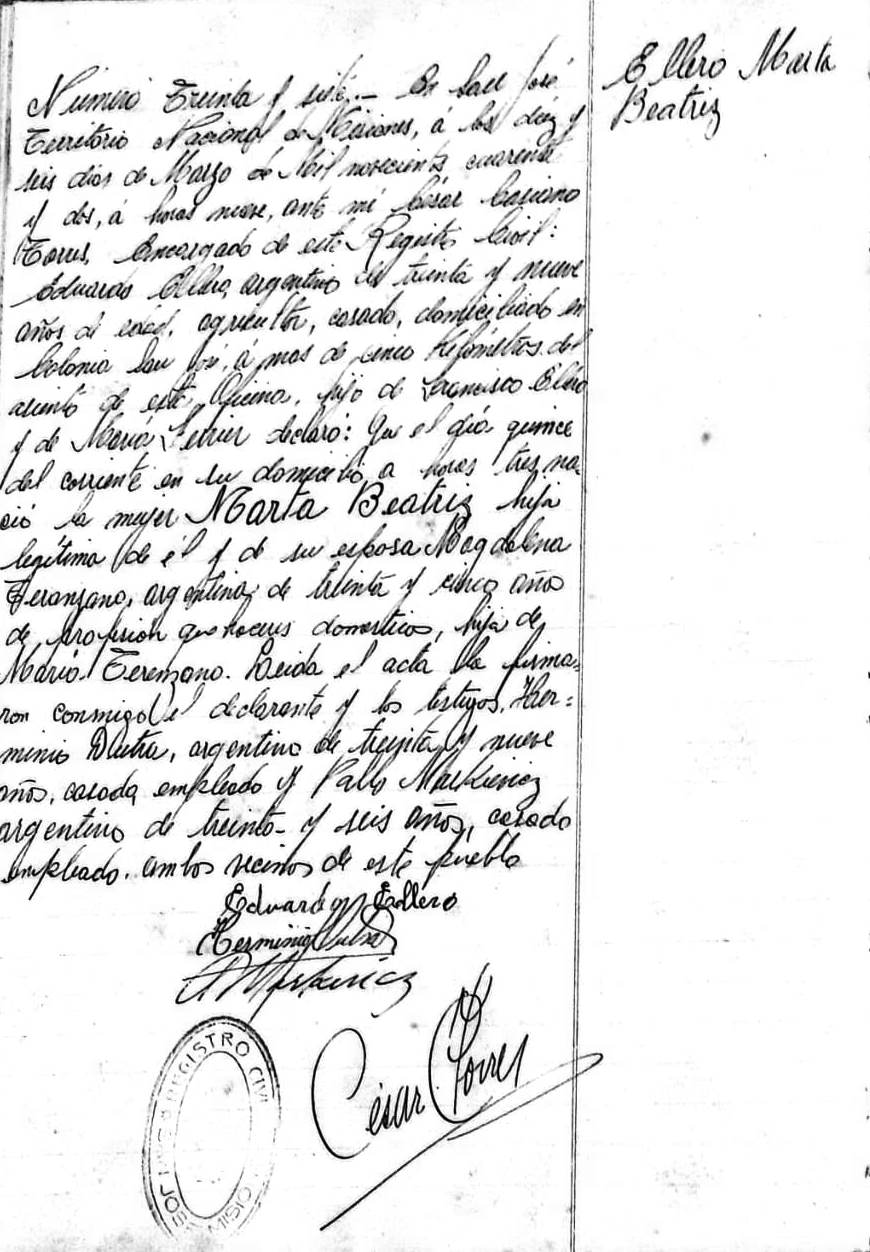 Número Treinta y siete.- En San José
Territorio Nacional de Misiones, á los diez y
seis dias de Marzo de Mil novecientos cuarenta
y dos, á horas nueve, ante mi César Casiano
Torres, Encargado de este Registro Civil:
Eduardo Ellero, argentino de treinta y nueve
años de edad, agricultor, casado, domiciliado en
Colonia San José, á mas de cinco kilómetros del
asiento de esta Oficina, hijo de Francisco Ellero
y de María declaró: Que el día quince
del corriente en su domicilio a horas tres na-
ció la mujer Marta Beatriz hija
legítima de él y de su esposa Magdalena
Teranzano, argentina de treinta y cinco años
de profesión quehaceres domesticos, hija de
María Terenzano. Leida el acta la firma=
ron conmigo el declarante y los testigos, Her=
minio Dutra, argentino de treinta y nueve
años, casado empleado y Pablo Markievicz
argentino de treinta y seis años, casado
empleado. ambos vecinos de este pueblo
Eduardo Ellero
Herminio Dutra
P Markievicz
César C Torres
REGISTRO CIVIL
SAN JOSE
MISIO
Ellero Marta
Beatriz